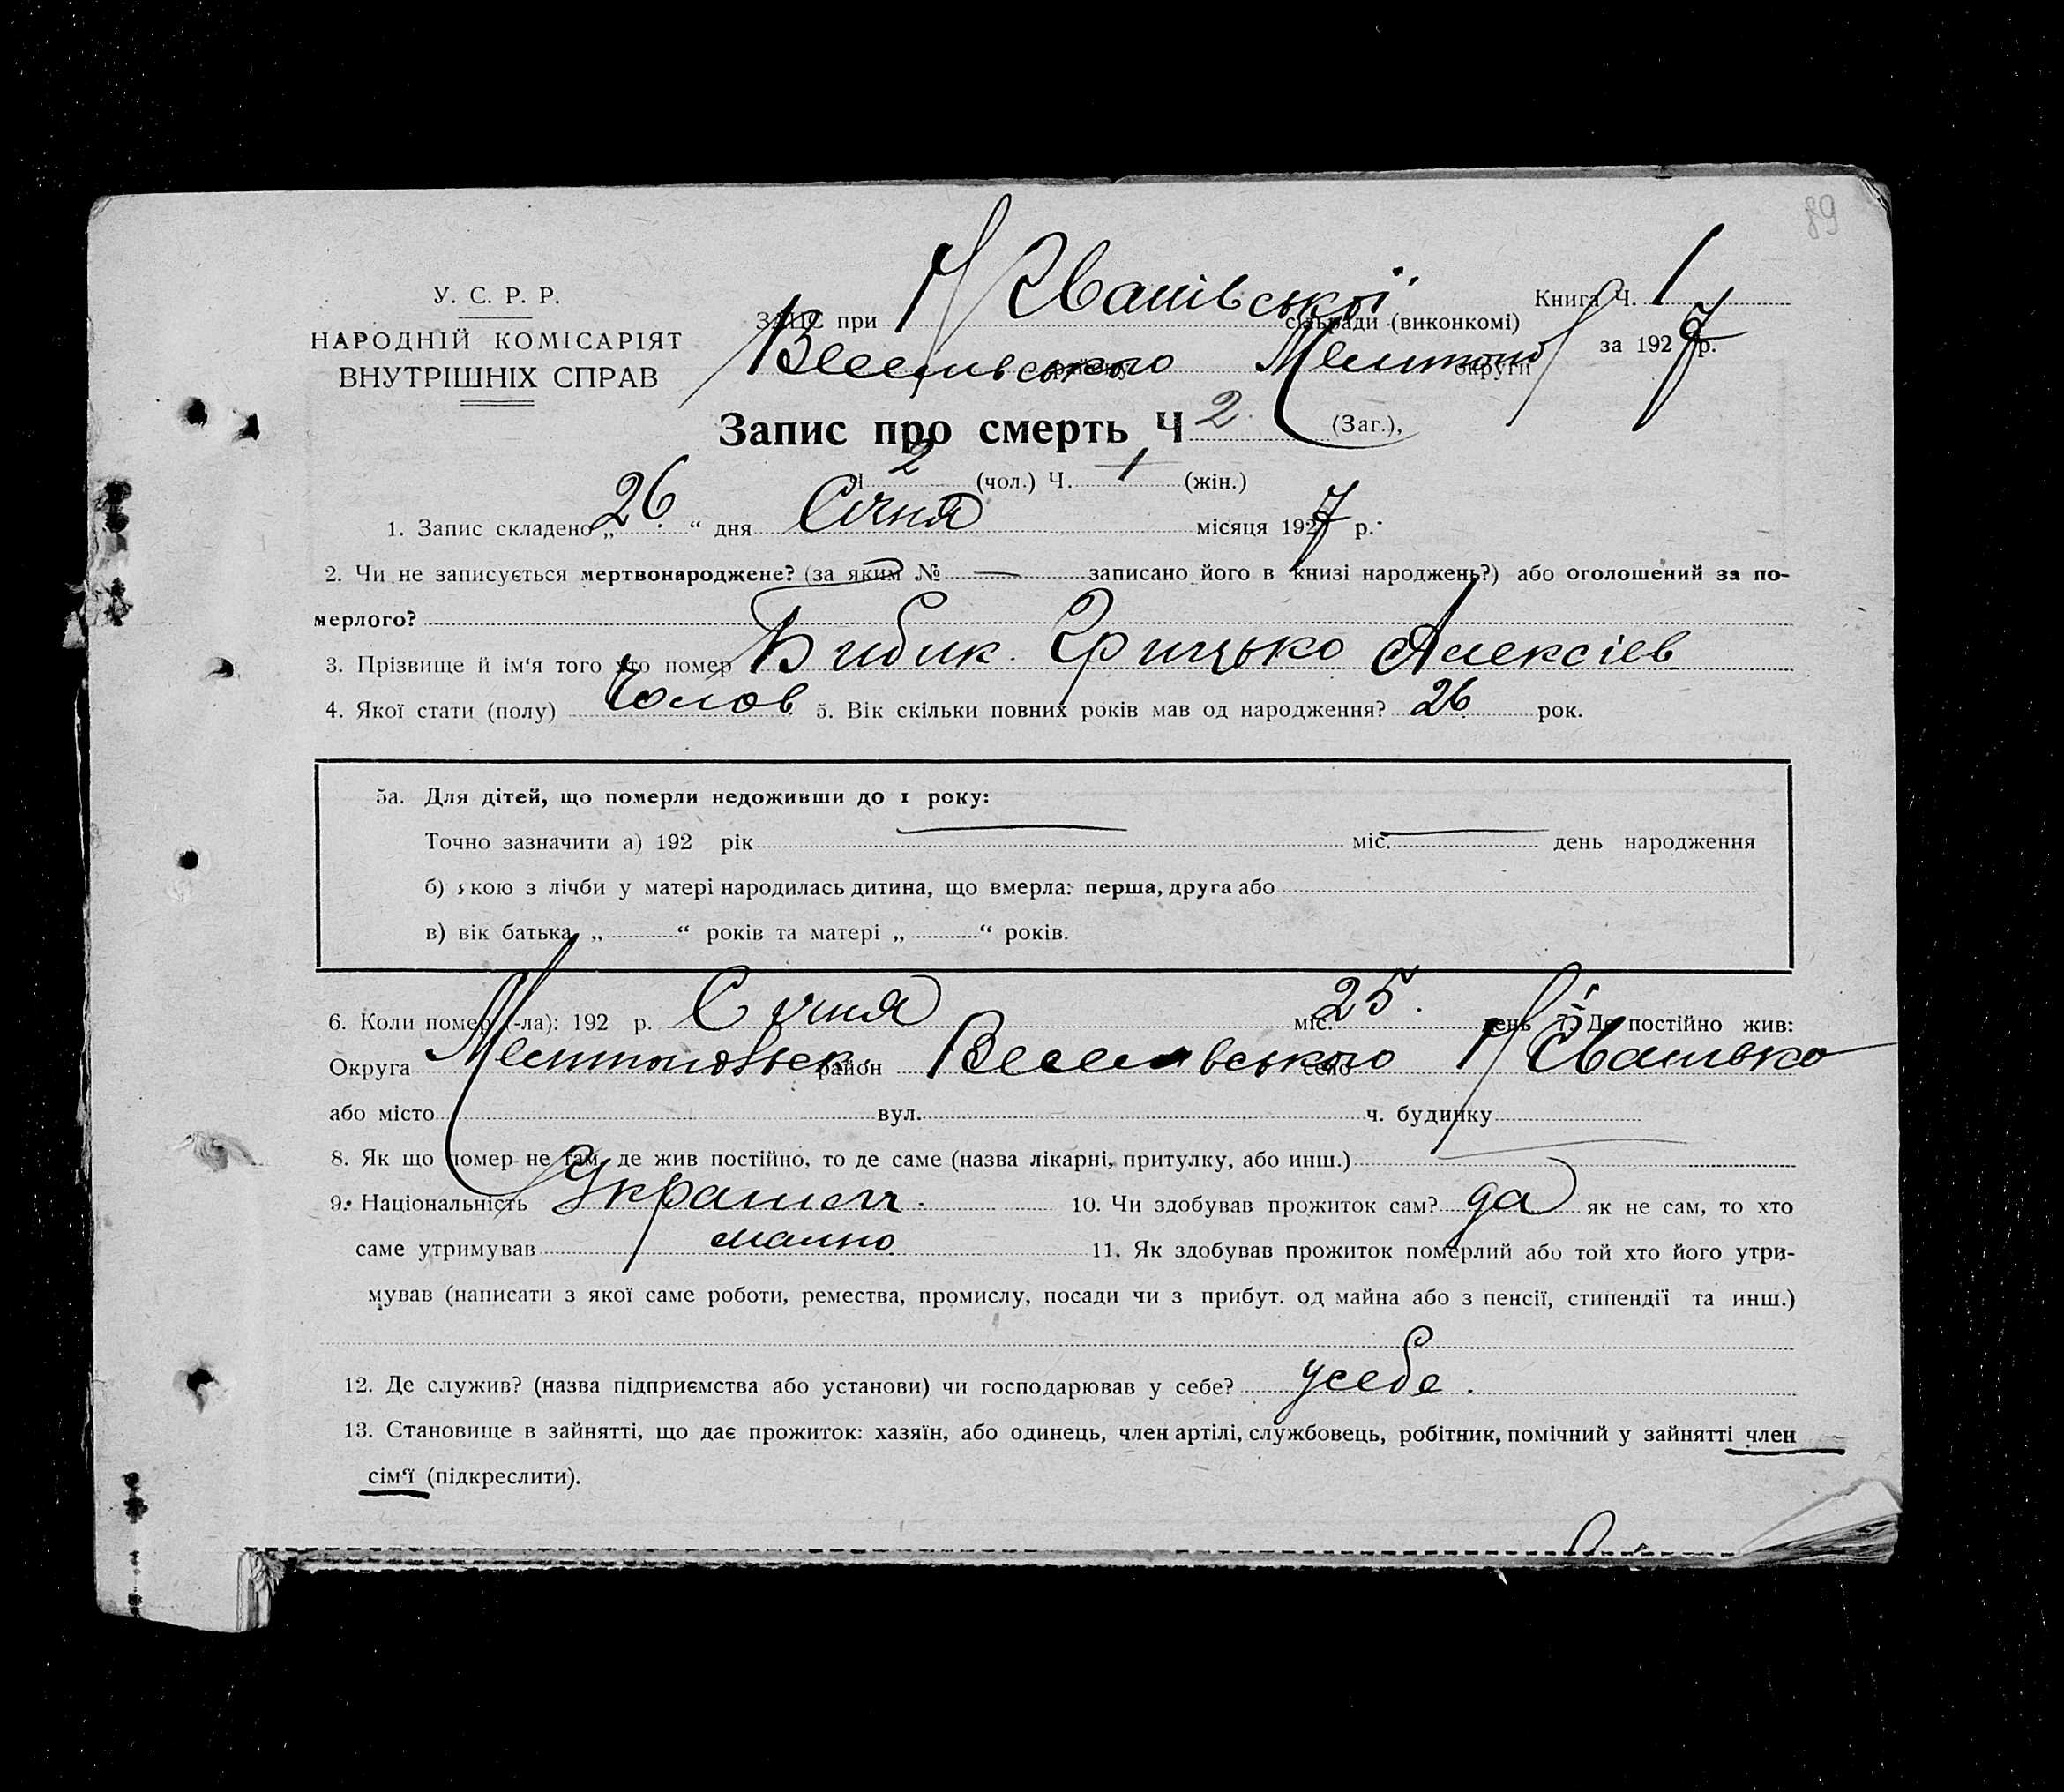 89
У. С. Р. Р.
НАРОДНІЙ КОМІСАРІЯТ
ВНУТРІШНІХ СПРАВ
ЗАГС при Н/Іванівської сільради (виконкомі)
Веселівського району Мелитоп округи
Книга Ч. 1
за 1927 р.
Запис про смерть Ч 2 (Заг.),
Ч 2 (чол.) Ч. 1 (жін.)
1. Запис складено „26“ дня Січня місяця 1927 р.
2. Чи не записується мертвонароджене? (за яким № — записано його в книзі народжень?) або оголошений за по-
мерлого?
3. Прізвище й ім‘я того хто помер Бибик Грицько Алексіев
4. Якої стати (полу) Чолов 5. Вік скільки повних років мав од народження? 26 рок.
5а. Для дітей, що померли недоживши до 1 року:
Точно зазначити а) 192 рік міс. день народження
б) якою з лічби у матері народилась дитина, що вмерла: перша, друга або
в) вік батька „ “ років та матері „ “ років.
6. Коли помер (-ла): 192 р. Січня міс. 25. день 7. Де постійно жив:
Округа район Веселівського село Н/Іванівко
або місто вул. ч. будинку
8. Як що помер не там, де жив постійно, то де саме (назва лікарні, притулку, або инш.)
9. Національність 10. Чи здобував прожиток сам? да як не сам, то хто
саме утримував 11. Як здобував прожиток померлий або той хто його утри-
мував (написати з якої саме роботи, ремества, промислу, посади чи з прибут. од майна або з пенсії, стипендії та инш.)
12. Де служив? (назва підприємства або установи) чи господарював у себе? усебе.
13. Становище в зайнятті, що дає прожиток: хазяїн, або одинець, член артілі, службовець, робітник, помічний у зайнятті член
сім‘ї (підкреслити).